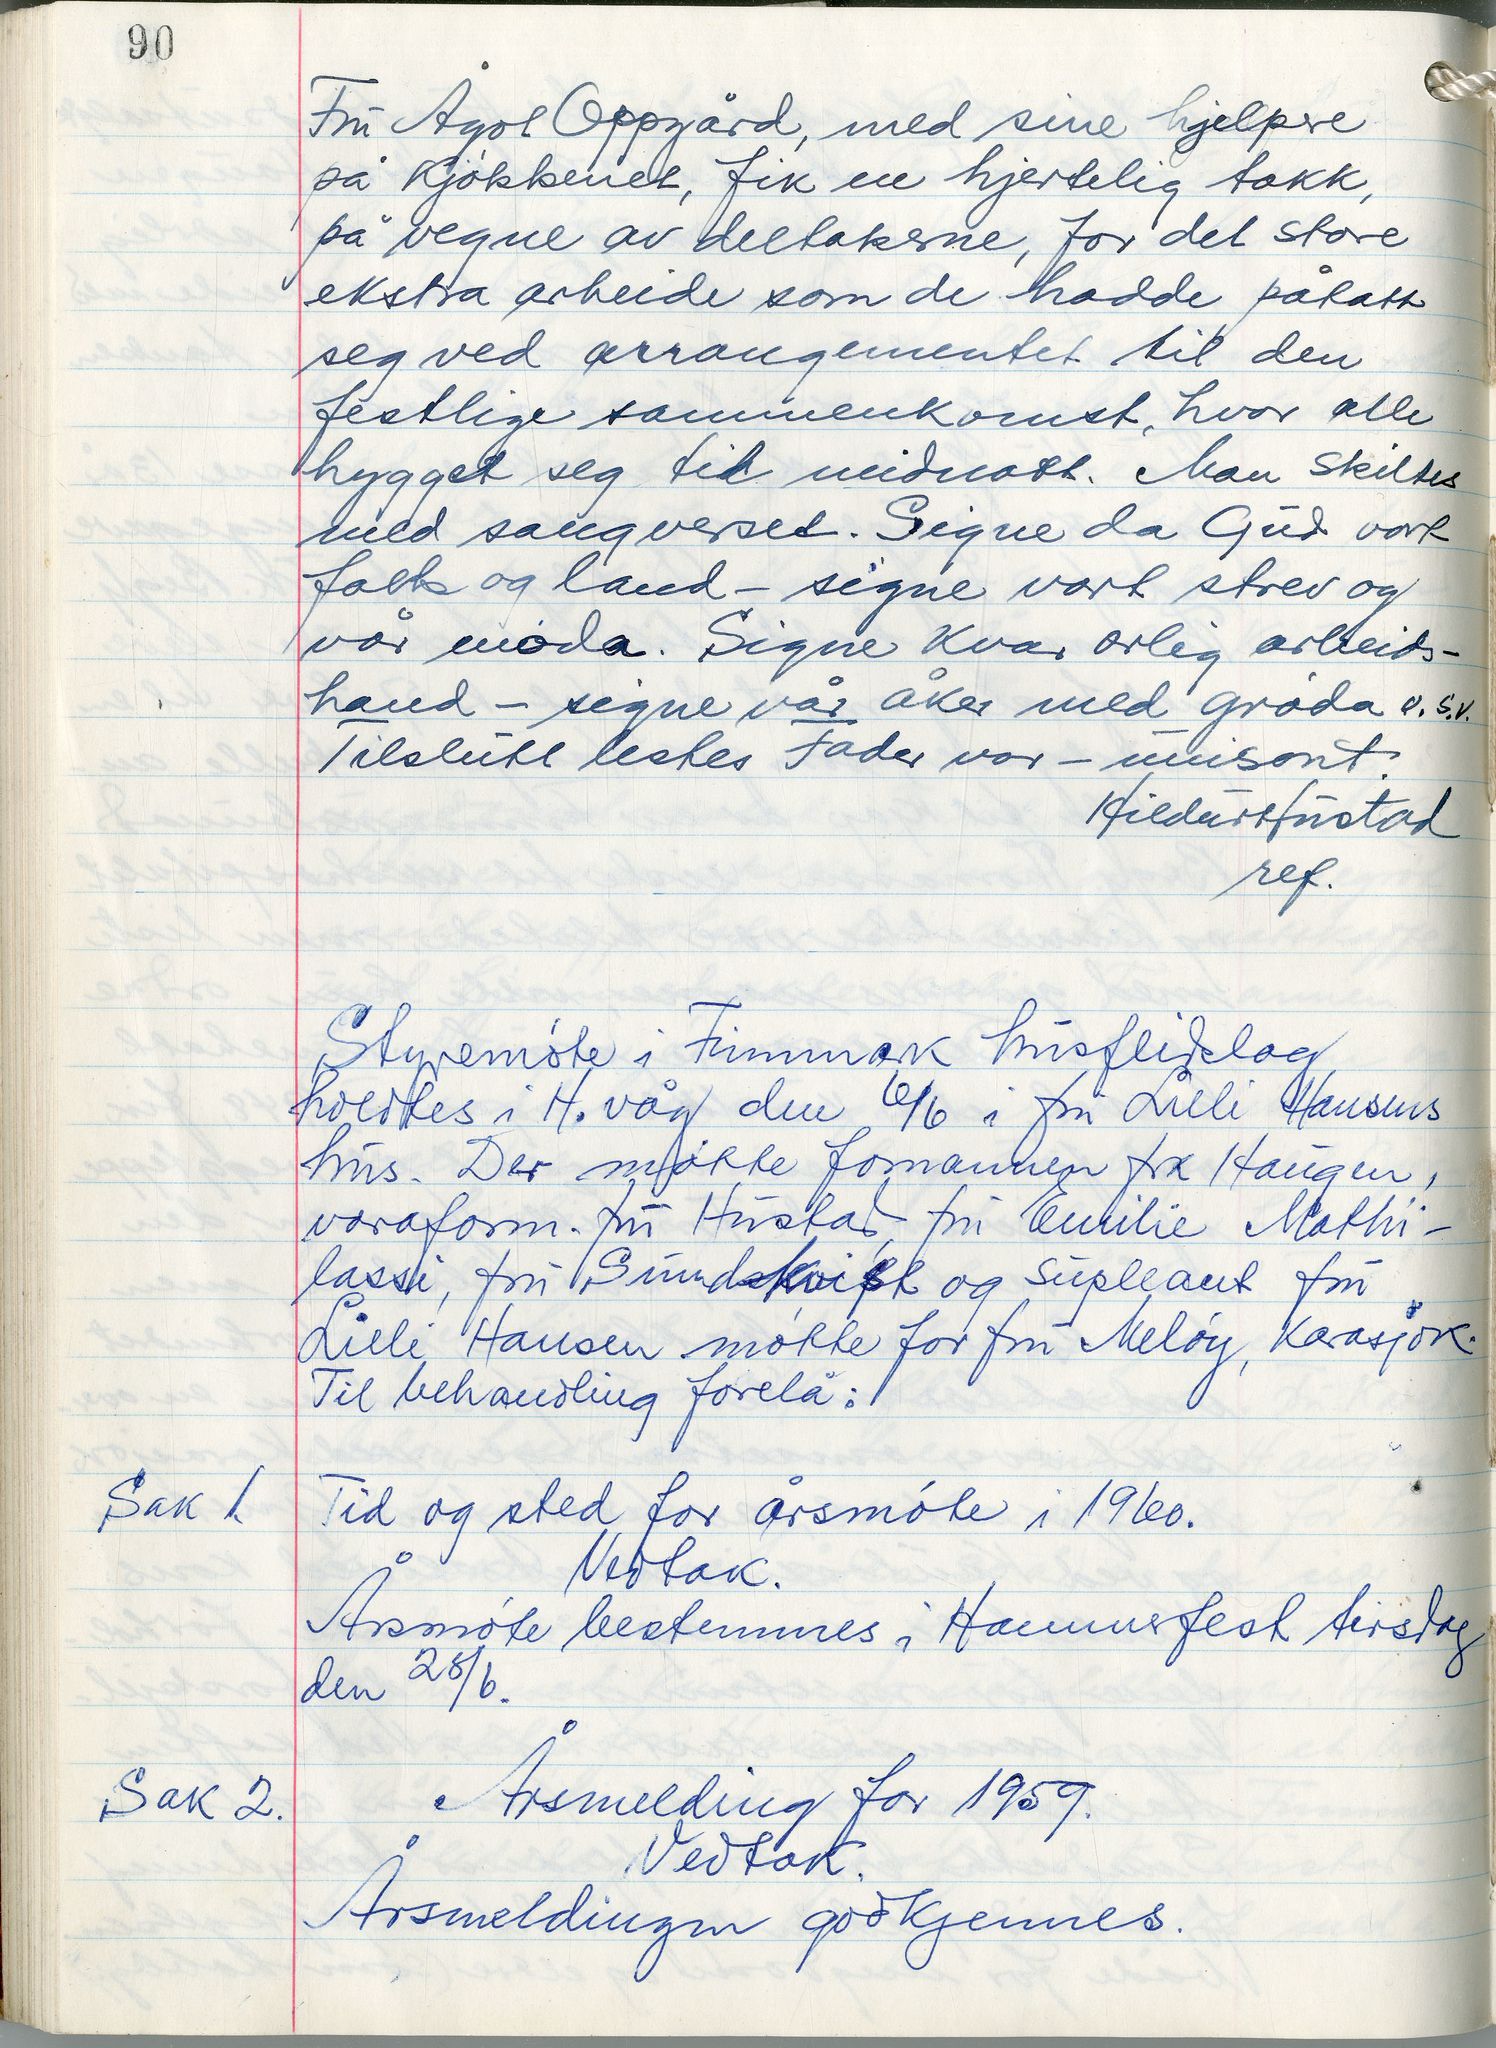 90
Fru Ågot Oppgård, med sine hjelpere
på kjøkkenet, fik en hjertelig takk,
på vegne av deltakerne, for det store
ekstra arbeide som de hadde påtatt
seg ved arrangementet til den
festlige sammenkomst, hvor alle
hygget seg til midnatt. Man skiltes
med sangverset. Signe da Gud vort
folk og land - signe vort strev og
vår møda. Signe kvar ærlig arbeids-
hand - signe vår åker med grøda o.s.v.
Tilslutt lestes Fader vor - unisont.
Hildur Hustad
ref.
Styremøte i Finnmark husflidslag
holdtes i H.våg den 6/6 i fru Lilli Hansens
hus. Der møtte formannen fra Haugen,
varaform. fru Hustad, fru Emilie Mathi-
lassi, fru Sundskvist og supleant fru
Lilli Hansen møtte for fru Meløy, Karasjok.
Til behandling forelå:
Sak 1. Tid og sted for årsmøte i 1960.
Vedtak.
Årsmøte bestemmes i Hammerfest tirsdag
den 28/6.
Sak 2. Årsmelding for 1959.
Vedtak.
Årsmeldingen godkjennes.